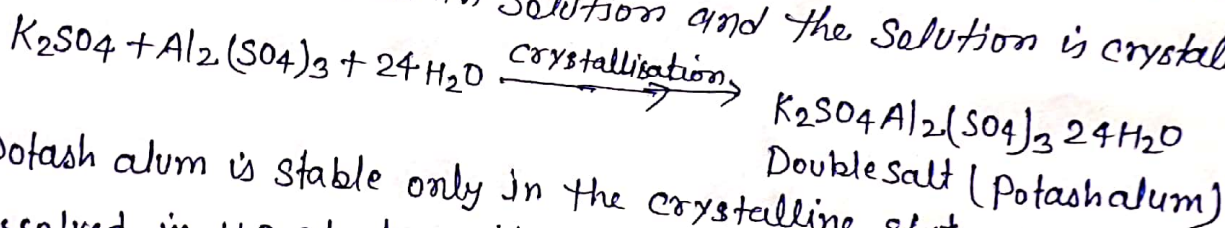 solution and the solution is crystal
K2SO4 + Al2(SO4)3 + 24H2O crystallisation
K2SO4 Al2(SO4)3 24H2O
Double salt (Potash alum)
Potash alum is stable only in the crystalline